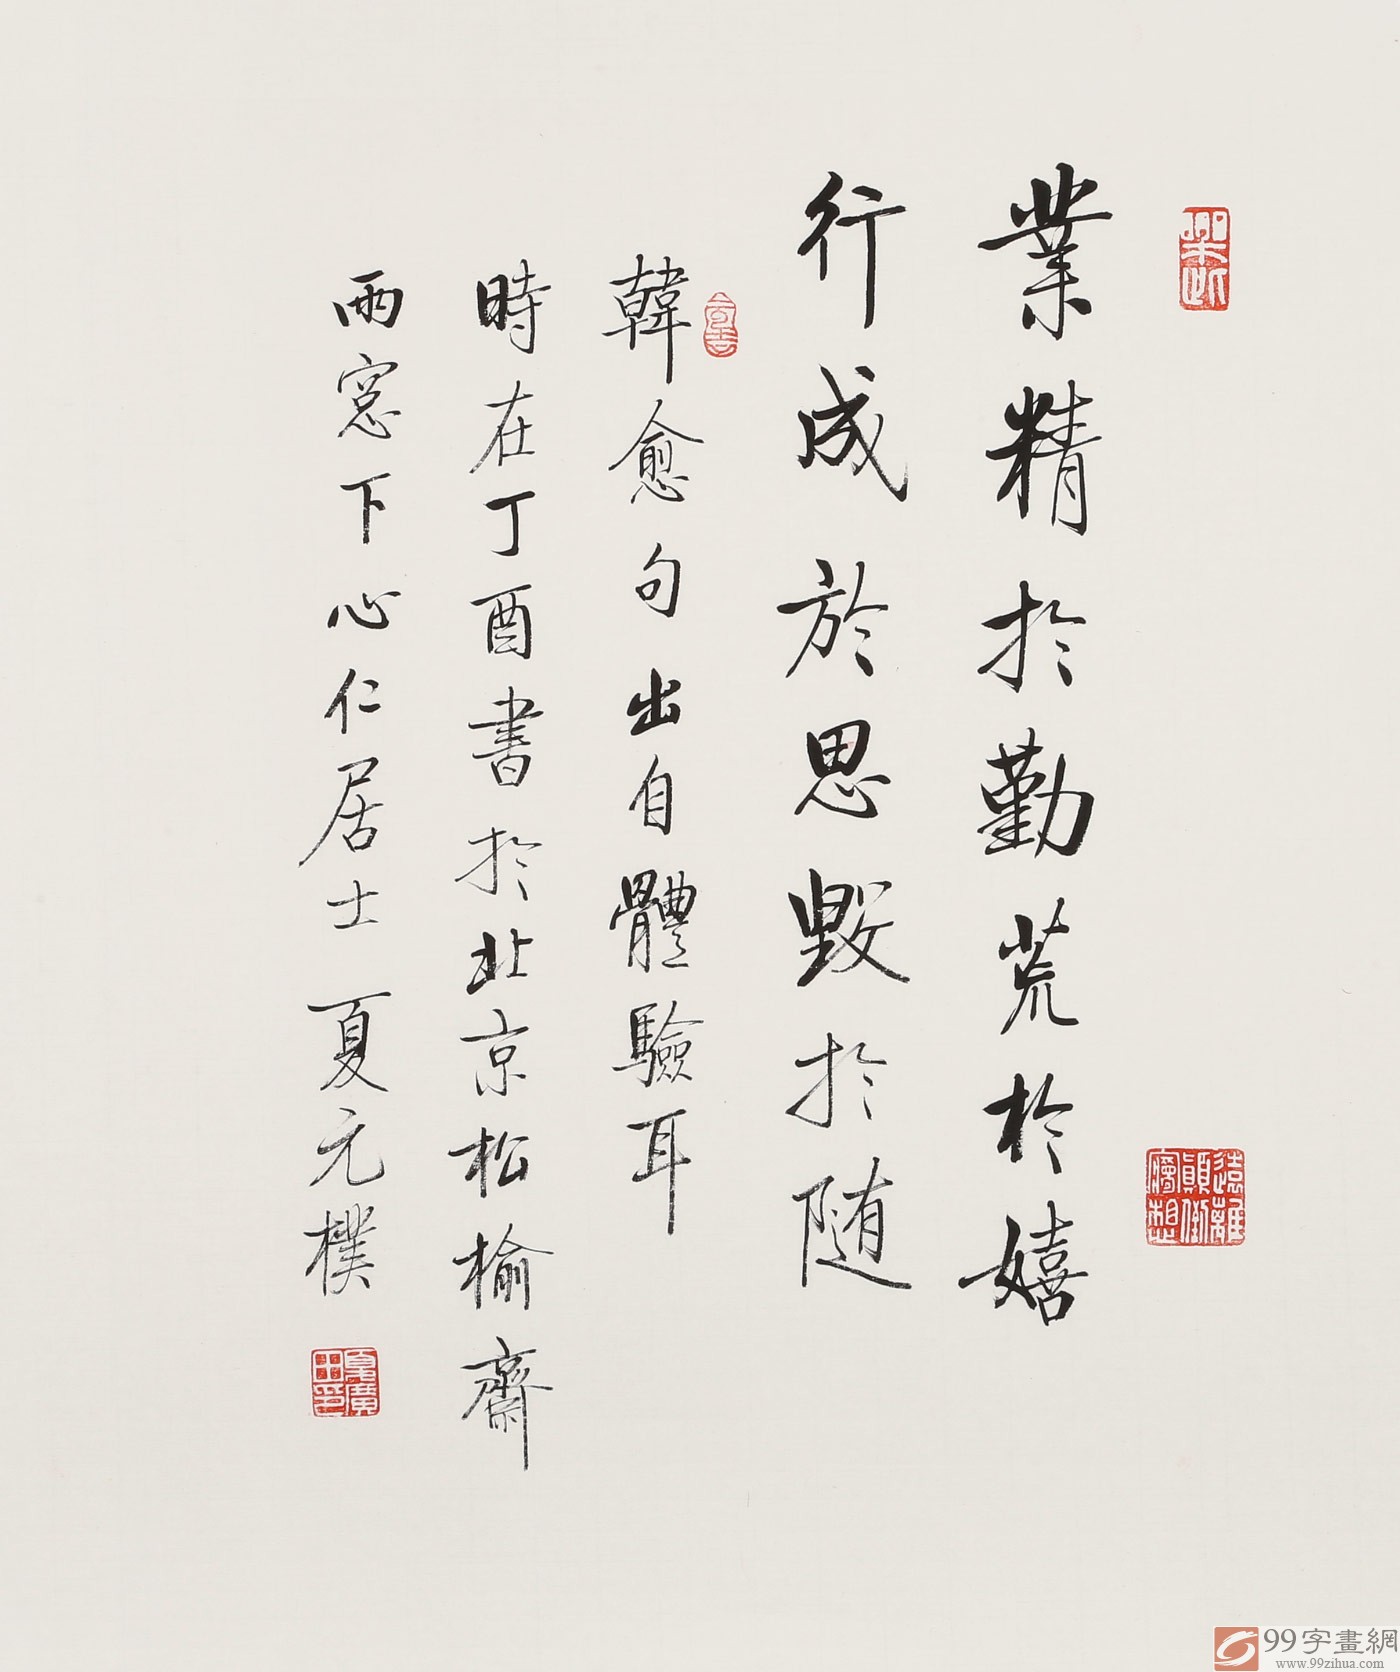 業精於勤荒於嬉
行成於思毀於随
韓愈句出自體驗耳
時在丁酉書於北京松榆齋
雨窓下心仁居士夏元樸
遠離顛倒夢想
99字畫網
www.99zihua.com